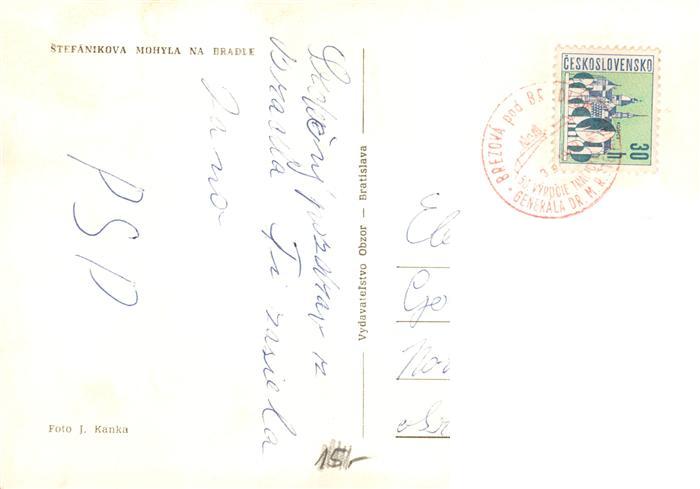 ŠTEFÁNIKOVA MOHYLA NA BRADLE
Srdečný pozdrav z
Bradla Ti zasiela
Jano
PSD
Foto J. Kanka
Vydavateľstvo Obzor — Bratislava
15,-
ČESKOSLOVENSKO
30 h
BREZOVÁ pod BR
50. VÝROČIE
GENERÁLA DR. M. R.
Ele
Nov